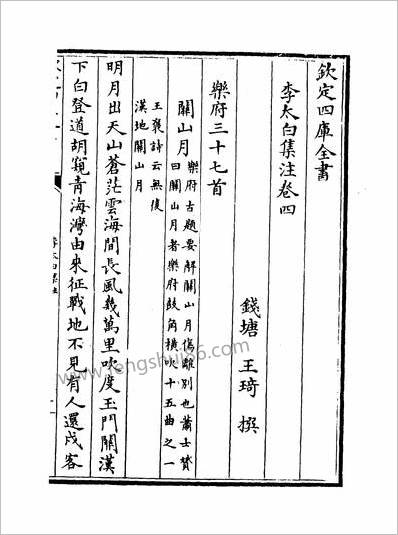 欽定四庫全書
李太白集注卷四
錢塘 王琦 撰
樂府三十七首
關山月樂府古題要解關山月傷離別也蕭士贇
曰關山月者樂府鼓角橫吹十五曲之一
王褒詩云無復
漢地關山月
明月出天山蒼茫雲海間長風幾萬里吹度玉門關漢
下白登道胡窺青海灣由來征戰地不見有人還戍客
李太白集注
www.fengshui86.com